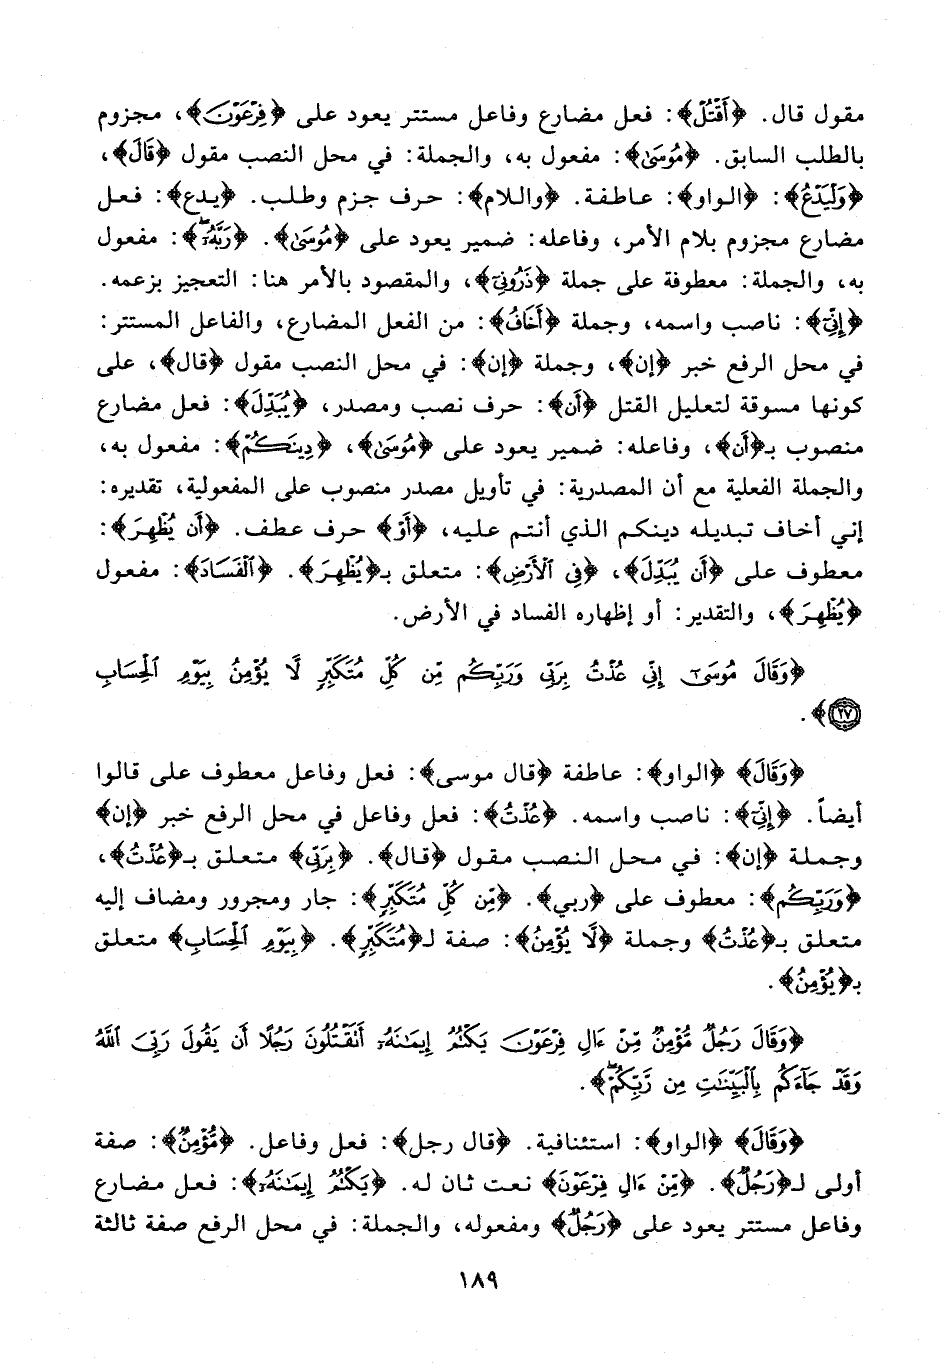 مقول قال. ﴿أَقْتُلْ﴾: فعل مضارع وفاعل مستتر يعود على ﴿فِرْعَوْنَ﴾، مجزوم
بالطلب السابق. ﴿مُوسَىٰ﴾: مفعول به، والجملة: في محل النصب مقول ﴿قَالَ﴾،
﴿وَلْيَدْعُ﴾: ﴿الواو﴾: عاطفة. ﴿واللام﴾: حرف جزم وطلب. ﴿يدع﴾: فعل
مضارع مجزوم بلام الأمر، وفاعله: ضمير يعود على ﴿مُوسَىٰ﴾. ﴿رَبَّهُۥٓ﴾: مفعول
به، والجملة: معطوفة على جملة ﴿ذَرُونِيٓ﴾، والمقصود بالأمر هنا: التعجيز بزعمه.
﴿إِنِّيٓ﴾: ناصب واسمه، وجملة ﴿أَخَافُ﴾: من الفعل المضارع، والفاعل المستتر:
في محل الرفع خبر ﴿إن﴾، وجملة ﴿إن﴾: في محل النصب مقول ﴿قال﴾، على
كونها مسوقة لتعليل القتل ﴿أن﴾: حرف نصب ومصدر، ﴿يُبَدِّلَ﴾: فعل مضارع
منصوب بـ﴿أن﴾، وفاعله: ضمير يعود على ﴿مُوسَىٰ﴾، ﴿دِينَكُمْ﴾: مفعول به،
والجملة الفعلية مع أن المصدرية: في تأويل مصدر منصوب على المفعولية، تقديره:
إني أخاف تبديله دينكم الذي أنتم عليه، ﴿أَوْ﴾ حرف عطف. ﴿أَن يُظْهِرَ﴾:
معطوف على ﴿أَن يُبَدِّلَ﴾، ﴿فِي ٱلْأَرْضِ﴾: متعلق بـ﴿يُظْهِرَ﴾. ﴿ٱلْفَسَادَ﴾: مفعول
﴿يُظْهِرَ﴾، والتقدير: أو إظهاره الفساد في الأرض.
﴿وَقَالَ مُوسَىٰٓ إِنِّي عُذْتُ بِرَبِّي وَرَبِّكُم مِّن كُلِّ مُتَكَبِّرٍ لَّا يُؤْمِنُ بِيَوْمِ ٱلْحِسَابِ
٢٧﴾.
﴿وَقَالَ﴾ ﴿الواو﴾: عاطفة ﴿قال موسى﴾: فعل وفاعل معطوف على قالوا
أيضاً. ﴿إِنِّي﴾: ناصب واسمه. ﴿عُذْتُ﴾: فعل وفاعل في محل الرفع خبر ﴿إن﴾
وجملة ﴿إن﴾: في محل النصب مقول ﴿قال﴾. ﴿بِرَبِّي﴾ متعلق بـ﴿عُذْتُ﴾،
﴿وَرَبِّكُم﴾: معطوف على ﴿ربي﴾. ﴿مِّن كُلِّ مُتَكَبِّرٍ﴾: جار ومجرور ومضاف إليه
متعلق بـ﴿عُذْتُ﴾ وجملة ﴿لَّا يُؤْمِنُ﴾: صفة لـ﴿مُتَكَبِّرٍ﴾. ﴿بِيَوْمِ ٱلْحِسَابِ﴾ متعلق
بـ﴿يُؤْمِنُ﴾.
﴿وَقَالَ رَجُلٌ مُّؤْمِنٌ مِّنْ ءَالِ فِرْعَوْنَ يَكْتُمُ إِيمَٰنَهُۥٓ أَتَقْتُلُونَ رَجُلًا أَن يَقُولَ رَبِّيَ ٱللَّهُ
وَقَدْ جَآءَكُم بِٱلْبَيِّنَٰتِ مِن رَّبِّكُمْ﴾.
﴿وَقَالَ﴾ ﴿الواو﴾: استئنافية. ﴿قال رجل﴾: فعل وفاعل. ﴿مُّؤْمِنٌ﴾: صفة
أولى لـ﴿رَجُلٌ﴾. ﴿مِّنْ ءَالِ فِرْعَوْنَ﴾ نعت ثان له. ﴿يَكْتُمُ إِيمَٰنَهُۥٓ﴾: فعل مضارع
وفاعل مستتر يعود على ﴿رَجُلٌ﴾ ومفعوله، والجملة: في محل الرفع صفة ثالثة
١٨٩